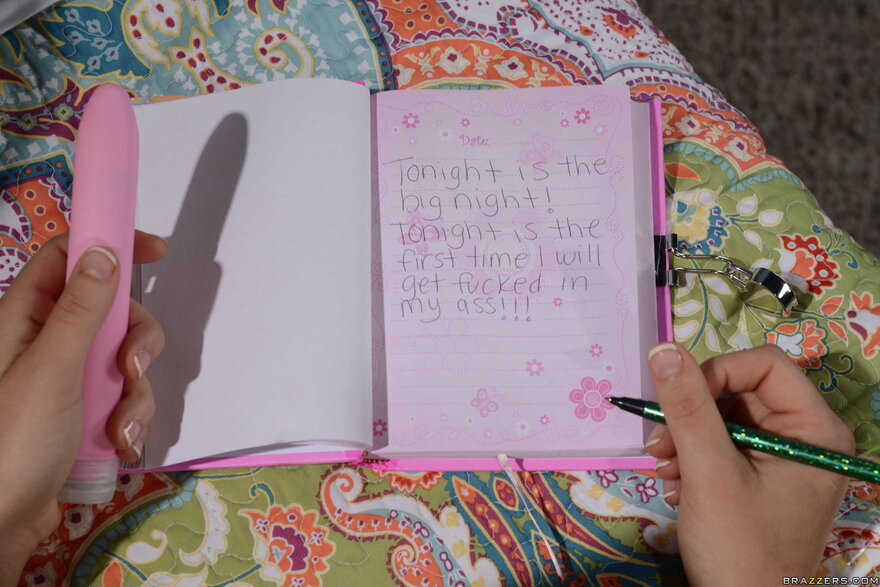 Date:
Tonight is the
big night!
Tonight is the
first time I will
get fucked in
my ass!!!
BRAZZERS.COM